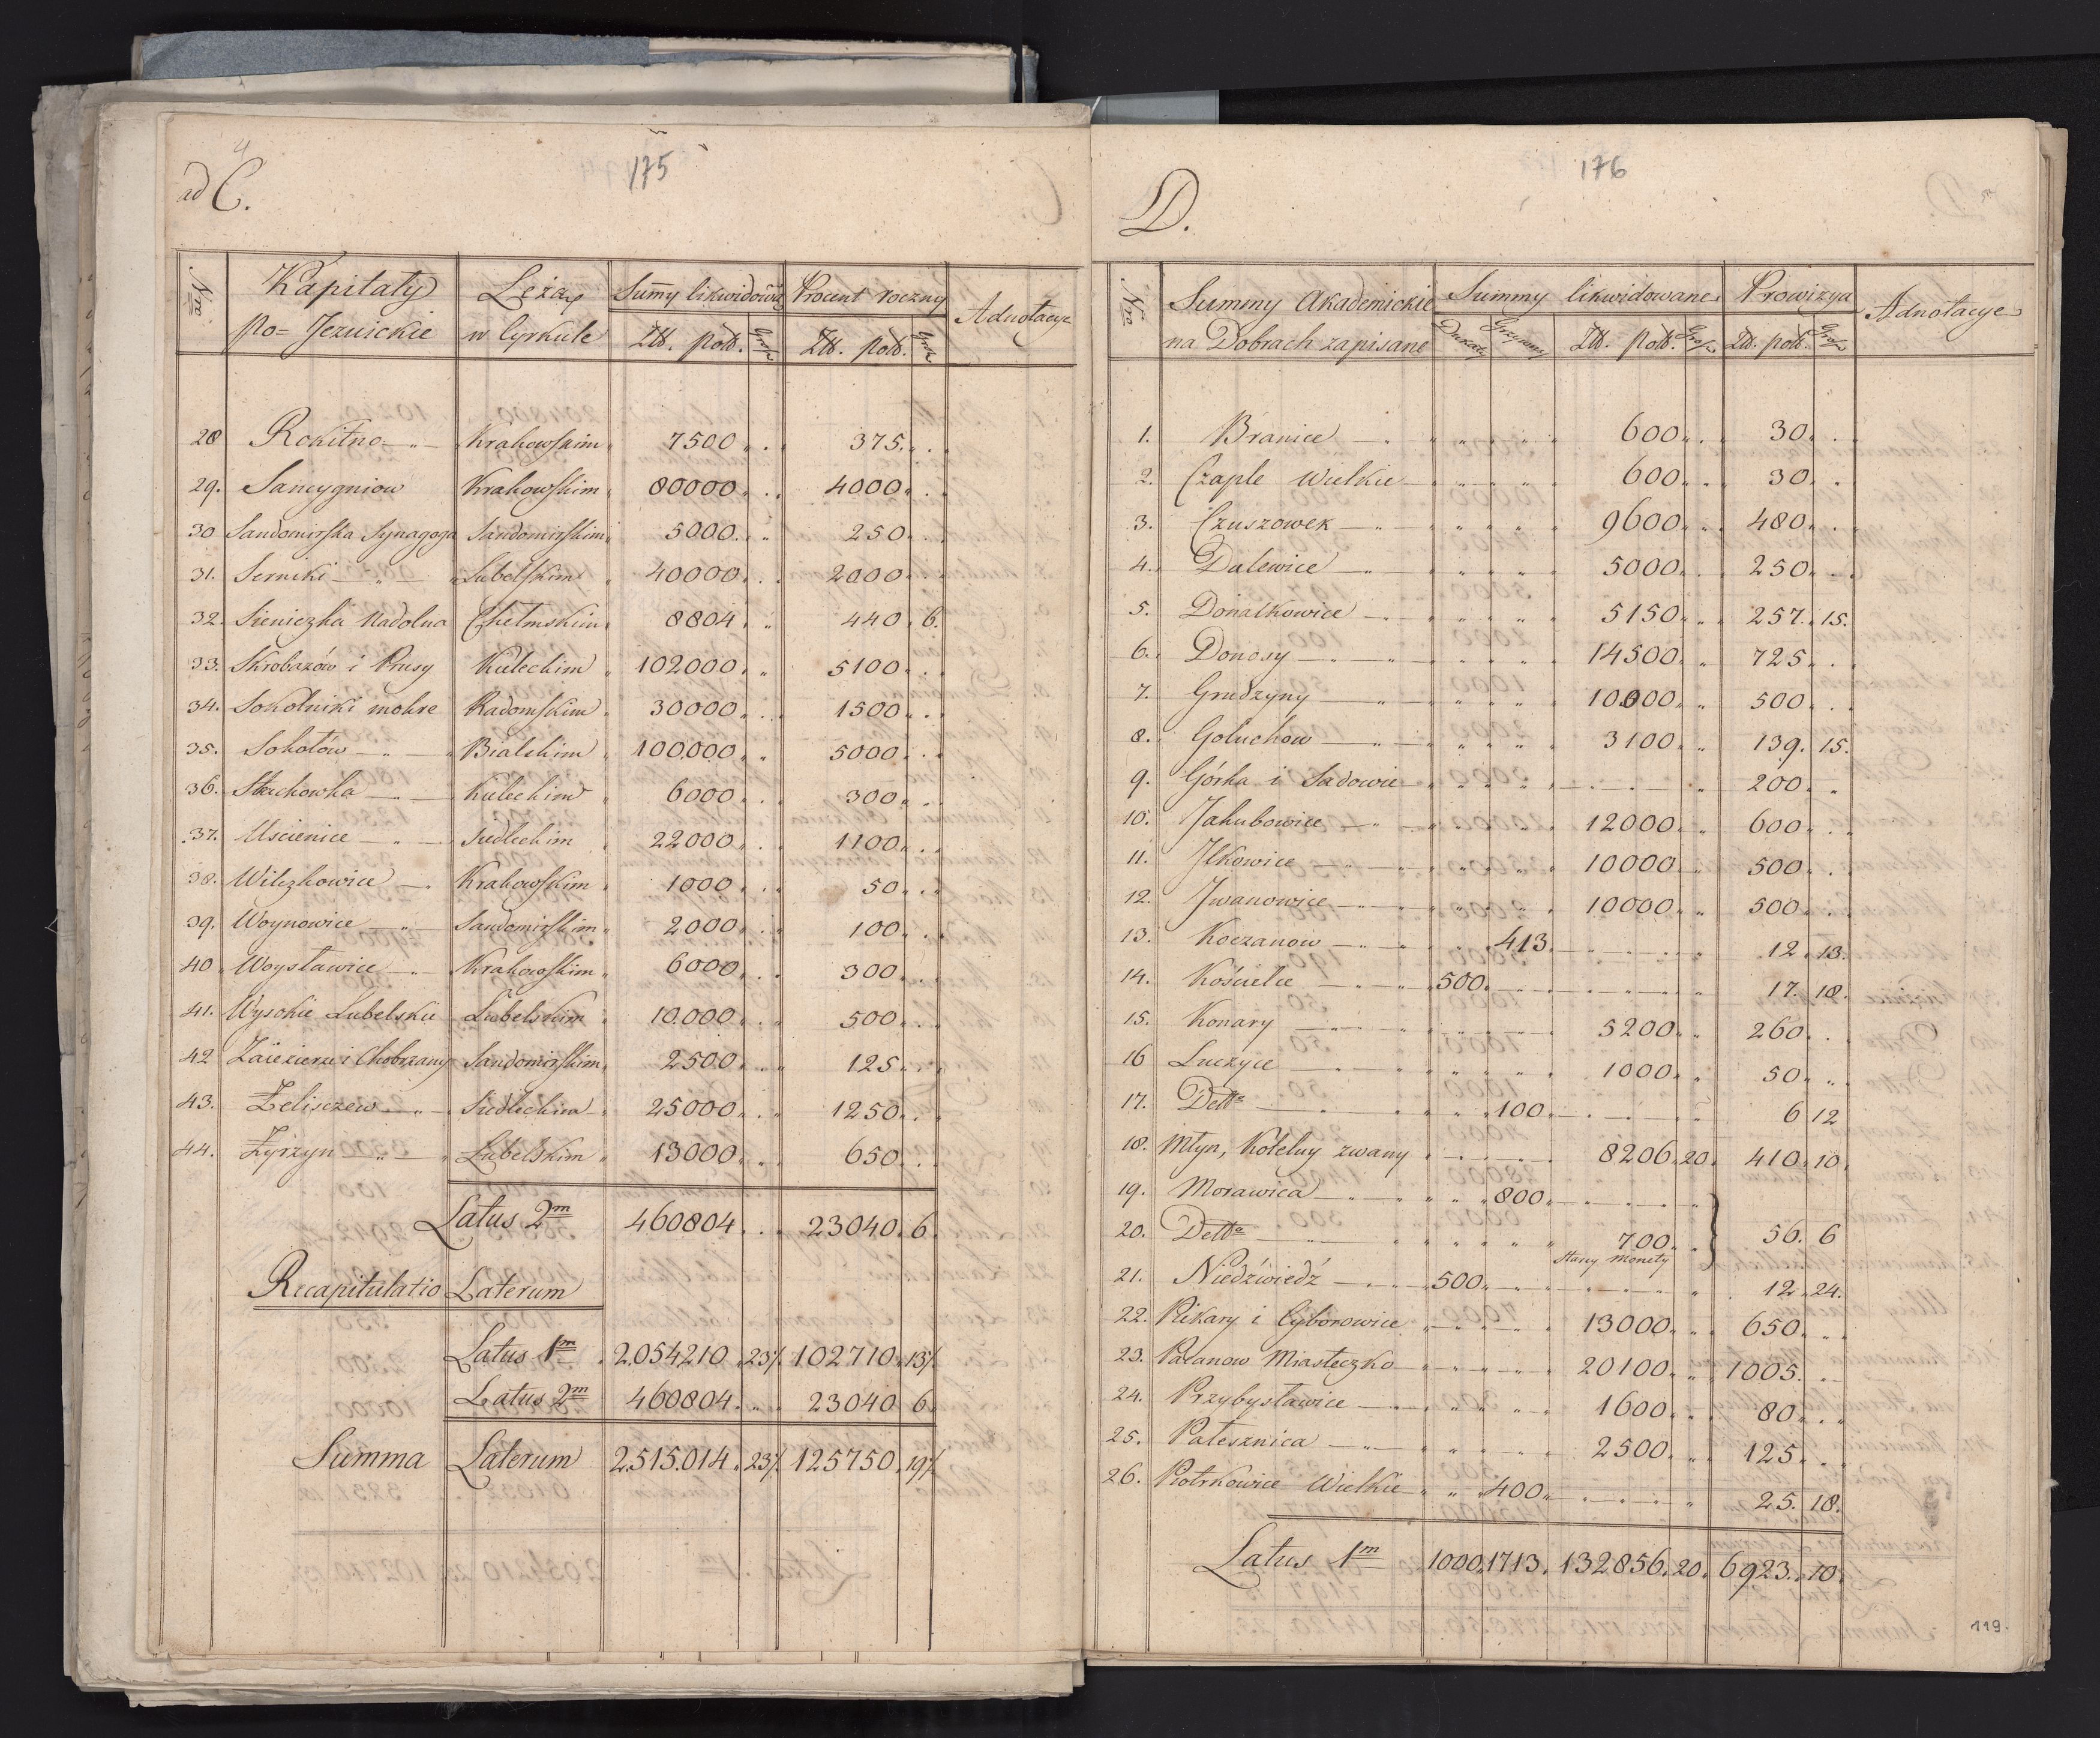 4
175
ad C.
Nro Kapitały Leżące Summy likwidowane Procent roczny Adnotacye
po=Jezuickie w Cyrkule Złł. Polł. Grosz Złł. Polł. Grosz
28 Rokitno Krakowskim 7500 375.
29. Sancygniow Krakowskim 80000 4000
30 Sandomirska Synagoga Sandomirskim 5000. 250
31. Serniki Lubelskim 40000 2000
32. Sieniczka Nadolna Chełmskim 8804 440 6.
33. Skrobazów i Prusy Kieleckim 102000 5100
34. Sokolniki mokre Radomskim 30000 1500
35. Sokołów Bialskim 100.000 5000
36. Stachowka Kieleckim 6000 300
37. Uscienice Siedleckim 22000 1100
38. Wilczkowice Krakowskim 1000 50
39. Woynowice Sandomirskim 2000 100
40 Woysławice Krakowskim 6000 300
41. Wysokie Lubelskie Lubelskim 10.000 500
42 Zaiezierze i Chobrzany Sandomirskim 2500 125
43. Żeliszew Siedleckim 25000 1250
44. Żyrzyn Lubelskim 13000 650
Latus 2m 460804 23040. 6.
Recapitulatio Laterum
Latus 1m 2.054210 23½ 102710 13½
Latus 2m 460804. 23040 6.
Summa Laterum 2.515.014. 23½ 125750 19½
176
D.
Nro Summy Akademickie Summy likwidowane Prowizya Adnotacye
na Dobrach zapisane Dukaty Grzywny Złł. Polł. Grosz Złł. polł. Grosz
1. Branice 600 30
2. Czaple Wielkie 600 30
3. Czuszowek 9600 480
4. Dalewice 5000 250
5. Donatkowice 5150 257. 15.
6. Donosy 14500 725
7. Grudzyny 10000 500
8. Goluchow 3100 139. 15.
9. Górka i Sadowie 200
10. Jakubowice 12000 600
11. Ilkowice 10000 500
12. Iwanowice 10000 500
13. Koczanow 413. 12. 13.
14. Kościelec 500. 17. 18.
15. Konary 5200 260
16 Luczyce 1000 50
17. Detto 100 6 12
18. Młyn, Kotelny zwany 8206. 20. 410. 10.
19. Morawica 800
20. Detto 700. 56. 6
Stary Monety
21. Niedźwiedź 500 12. 24.
22. Pikary i Cyborowice 13000 650
23. Pacanow Miasteczko 20100 1005.
24. Przybysławice 1600 80
25. Pałesznica 2500 125
26. Piotrkowice Wielkie 400 25. 18.
Latus 1m 1000. 1713. 132.856. 20. 6923. 10.
119.